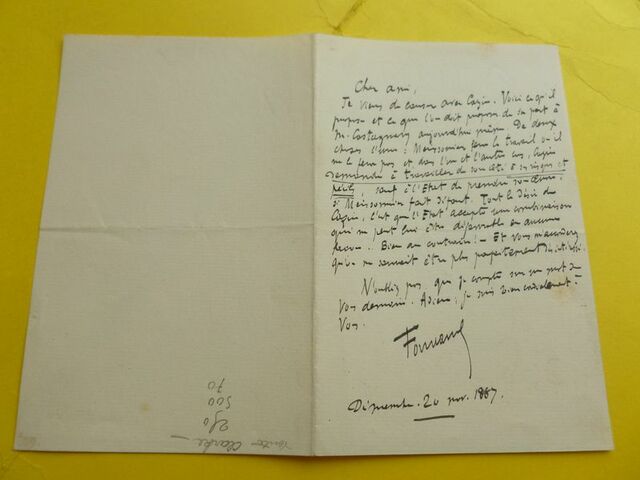 Cher ami,
Je viens de causer avec Cazin. Voici ce qu'il
propose et ce que l'on doit proposer de sa part à
M. Castagnary aujourd'hui même. De deux
choses l'une : Meissonier fera le travail ou il
ne le fera pas et dans l'un et l'autre cas, Cazin
demande à travailler de son côté à ses risques et
périls, sauf à l'Etat de prendre son œuvre
si Meissonier fait défaut. Tout le désir de
Cazin, c'est que l'Etat accepte une combinaison
qui ne peut lui être désagréable en aucune
façon. Bien au contraire ! — Et vous m'accorderez
qu'on ne saurait être plus parfaitement désintéressé.
N'oubliez pas que je compte sur un mot de
vous demain. Adieu, je suis bien cordialement à
vous.
Dimanche. 20 nov. 1887.
70
500
250